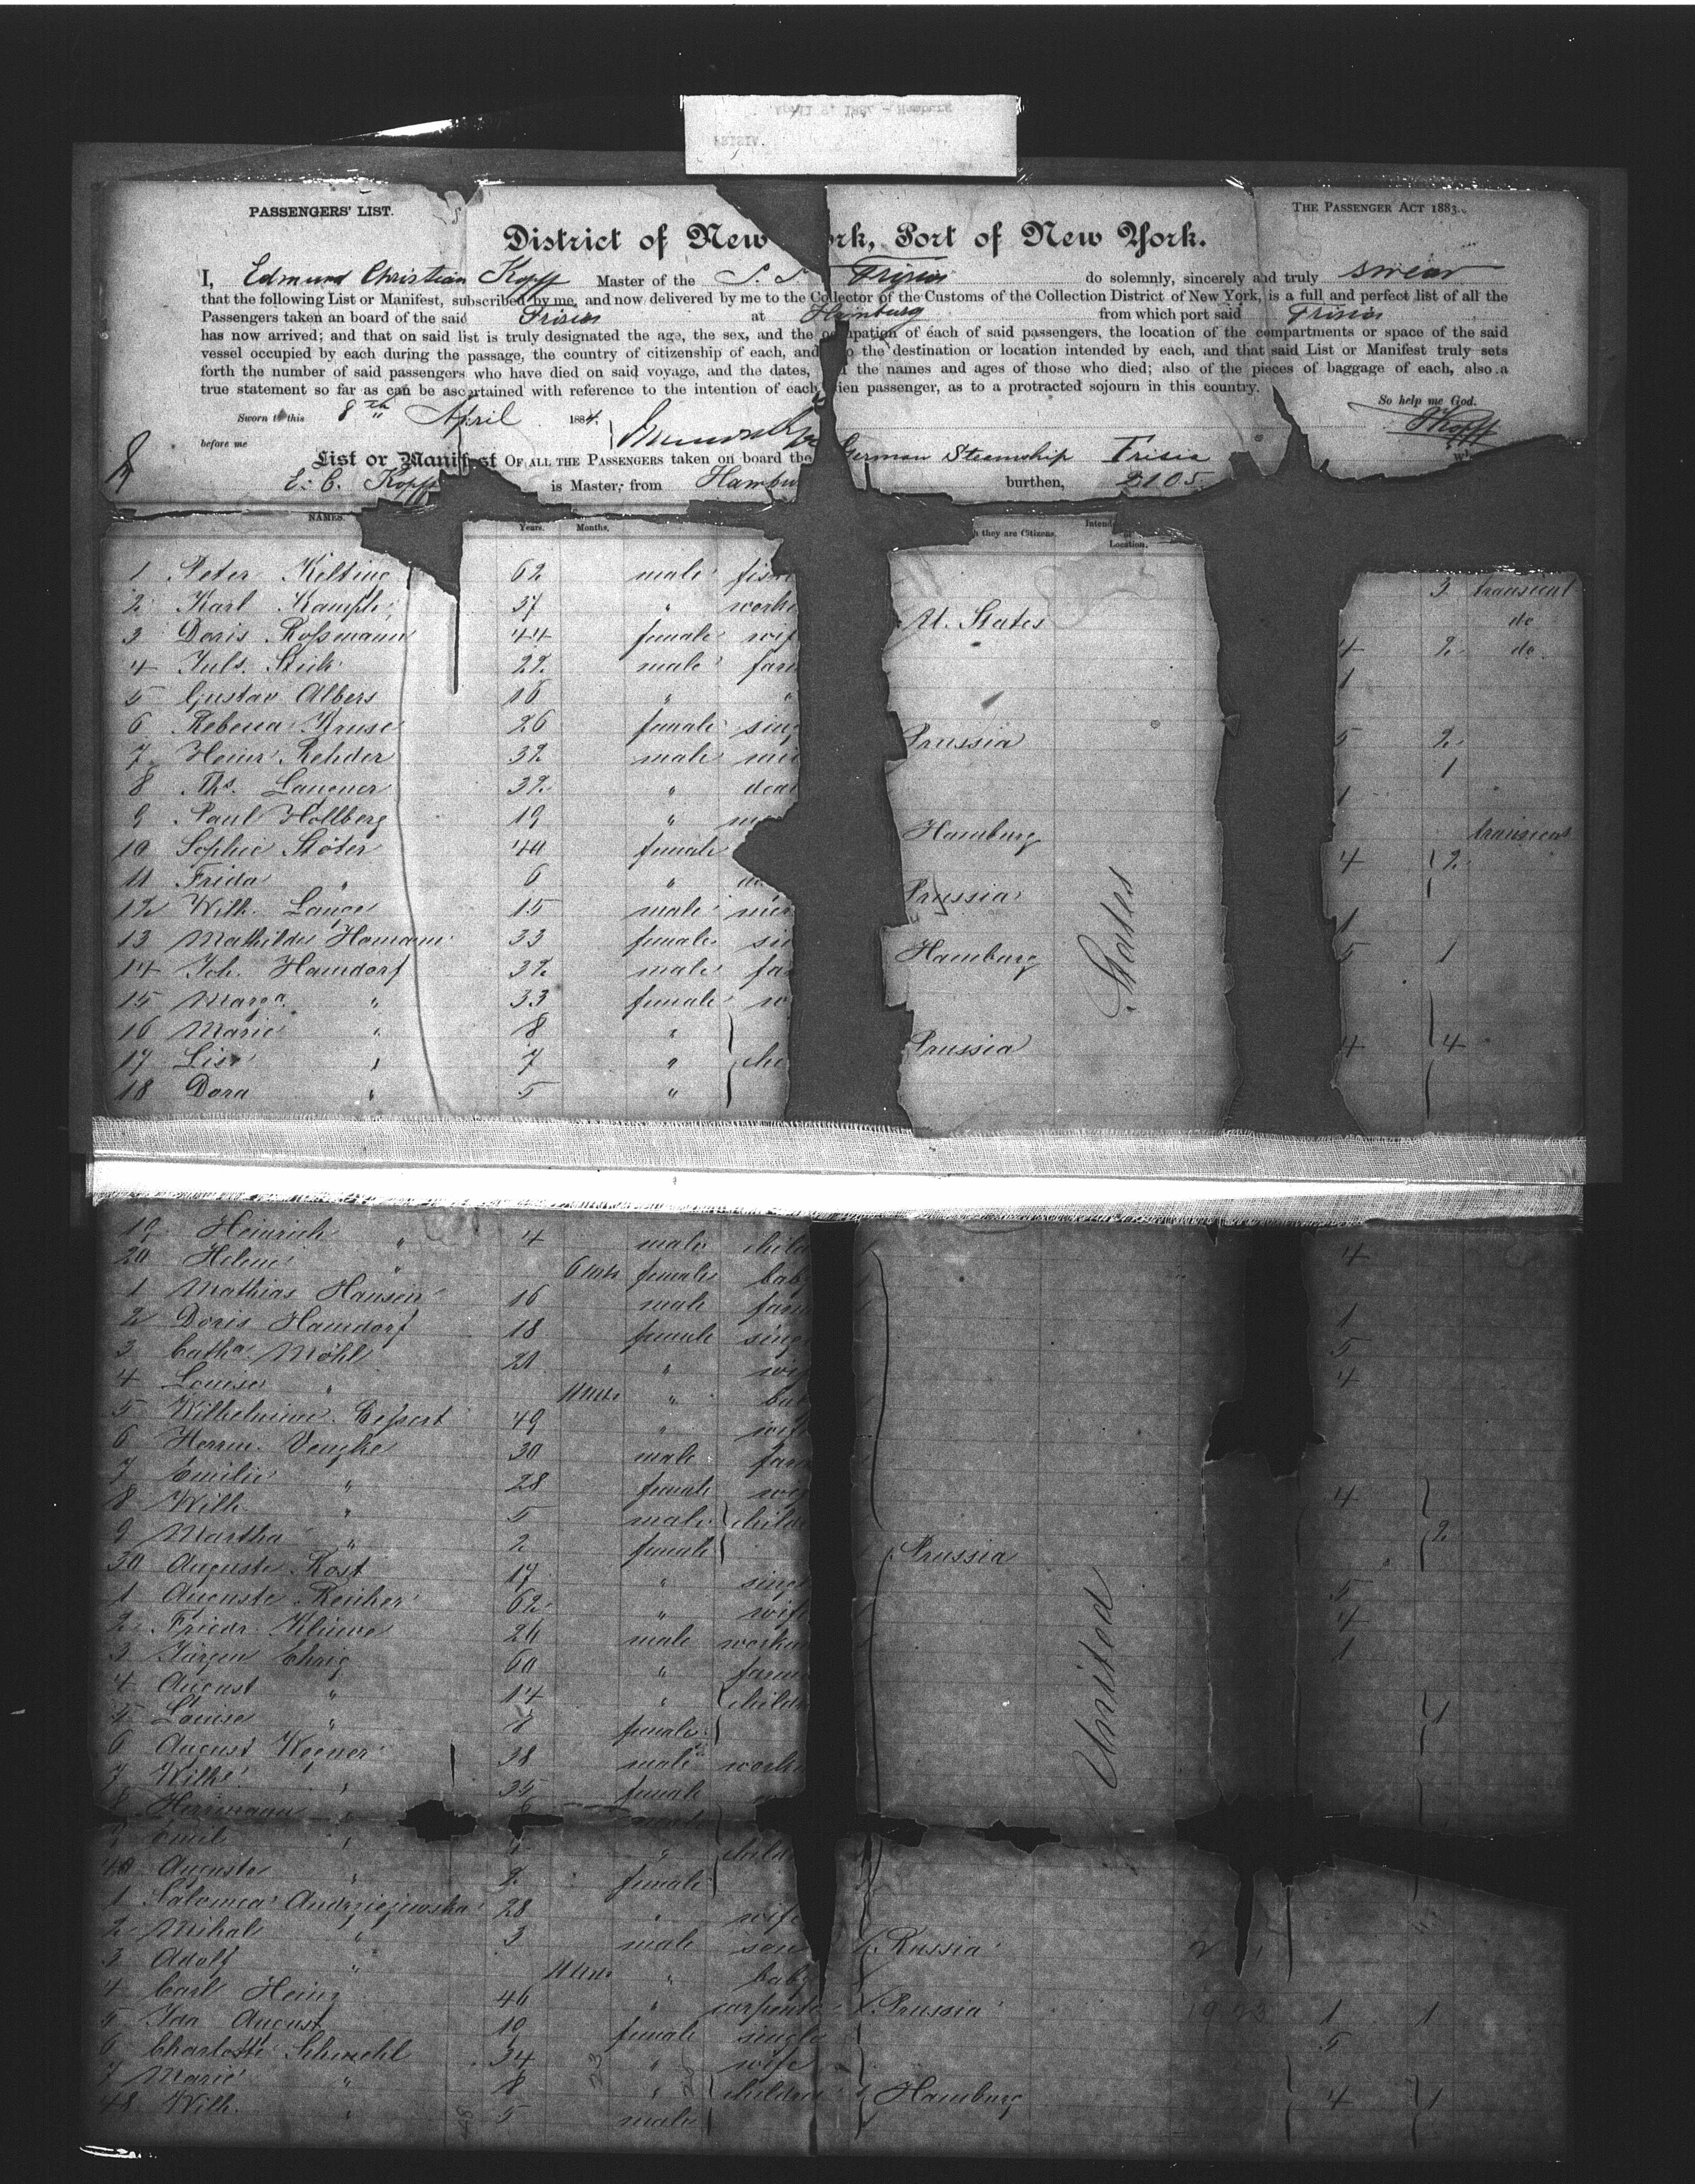 PASSENGERS' LIST.
THE PASSENGER ACT 1883.
District of New rk, Port of New York.
I, Edmund Christian Kopff Master of the S. S. Frisia do solemnly, sincerely and truly swear
that the following List or Manifest, subscribed by me, and now delivered by me to the Collector of the Customs of the Collection District of New York, is a full and perfect list of all the
Passengers taken on board of the said Frisia at Hamburg from which port said Frisia
has now arrived; and that on said list is truly designated the age, the sex, and the occupation of each of said passengers, the location of the compartments or space of the said
vessel occupied by each during the passage, the country of citizenship of each, and o the destination or location intended by each, and that said List or Manifest truly sets
forth the number of said passengers who have died on said voyage, and the dates, the names and ages of those who died; also of the pieces of baggage of each, also a
true statement so far as can be ascertained with reference to the intention of each ien passenger, as to a protracted sojourn in this country.
So help me God.
Sworn to this 8th April 1884.
EKopff
before me
List or Manifest OF ALL THE PASSENGERS taken on board the German Steamship Frisia
E. C. Kopff is Master, from Hambu burthen, 2105
NAMES. Years. Months. h they are Citizens. Intend of Location.
1 Peter Kelting 62 male fish 3 transient
2 Karl Kamph 37 " worke U. States do
3 Doris Roßmann 44 female wif 4 2 do
4 Juls. Stick 22 male farm 1
5 Gustav Albers 16 " "
6 Rebecca Kruse 26 female sing Prussia 5 2
7 Heinr. Rehder 32 male 1
8 Ths. 32 " deal 1
9 Paul Hollberg 19 " Hamburg transient
10 Sophie Stöter 44 female 4 2
11 Frida " 6 " Prussia
12 Wilh. Lange 15 male mer 1
13 Mathilde Homann 33 female sin Hamburg 5 1
14 Joh. Hamdorf 32 male fa States
15 Marga. " 33 female w
16 Marie " 8 "
17 Lise " 7 " chi Prussia 4 4
18 Dora " 5 "
19 Heinrich " 4 male child 4
20 Helene " 6 mts female bab
1 Mathias Hansen 16 male farm 1
2 Doris Hamdorf 18 female sing 5
3 Catha Möhl 21 " wif 4
4 Louise " 11 mts " bab
5 Wilhelmine 49 " wif
6 Herm. Venzke 30 male farm
7 Emilie " 28 female wif 4
8 Wilh. " 5 male childr 2
9 Martha " 2 female Prussia
30 Auguste Kost 17 " singl 5
1 Auguste Reicher 62 " wife 4
2 Friedr. Kluwe 26 male worke 1
3 Jürgen Ehrig 60 " farm
4 August " 14 " childr
5 Louise " 8 female 1
6 August Wegner 38 male worke United
7 Wilhe. " 35 female
8 Herrmann " 6 male
9 Emil " 4 " child
40 Auguste " 2 female
1 Salomea Andrziejewska 28 " wife
2 Mihal " 3 male son Russia
3 Adolf " 11 mts " baby
4 Carl Heinz 46 " carpente Prussia 1 1
5 Ida August 19 female single 5
6 Charlotte Schmehl 34 " wife
7 Marie " 8 " children Hamburg 4 1
48 Wilh. " 5 male